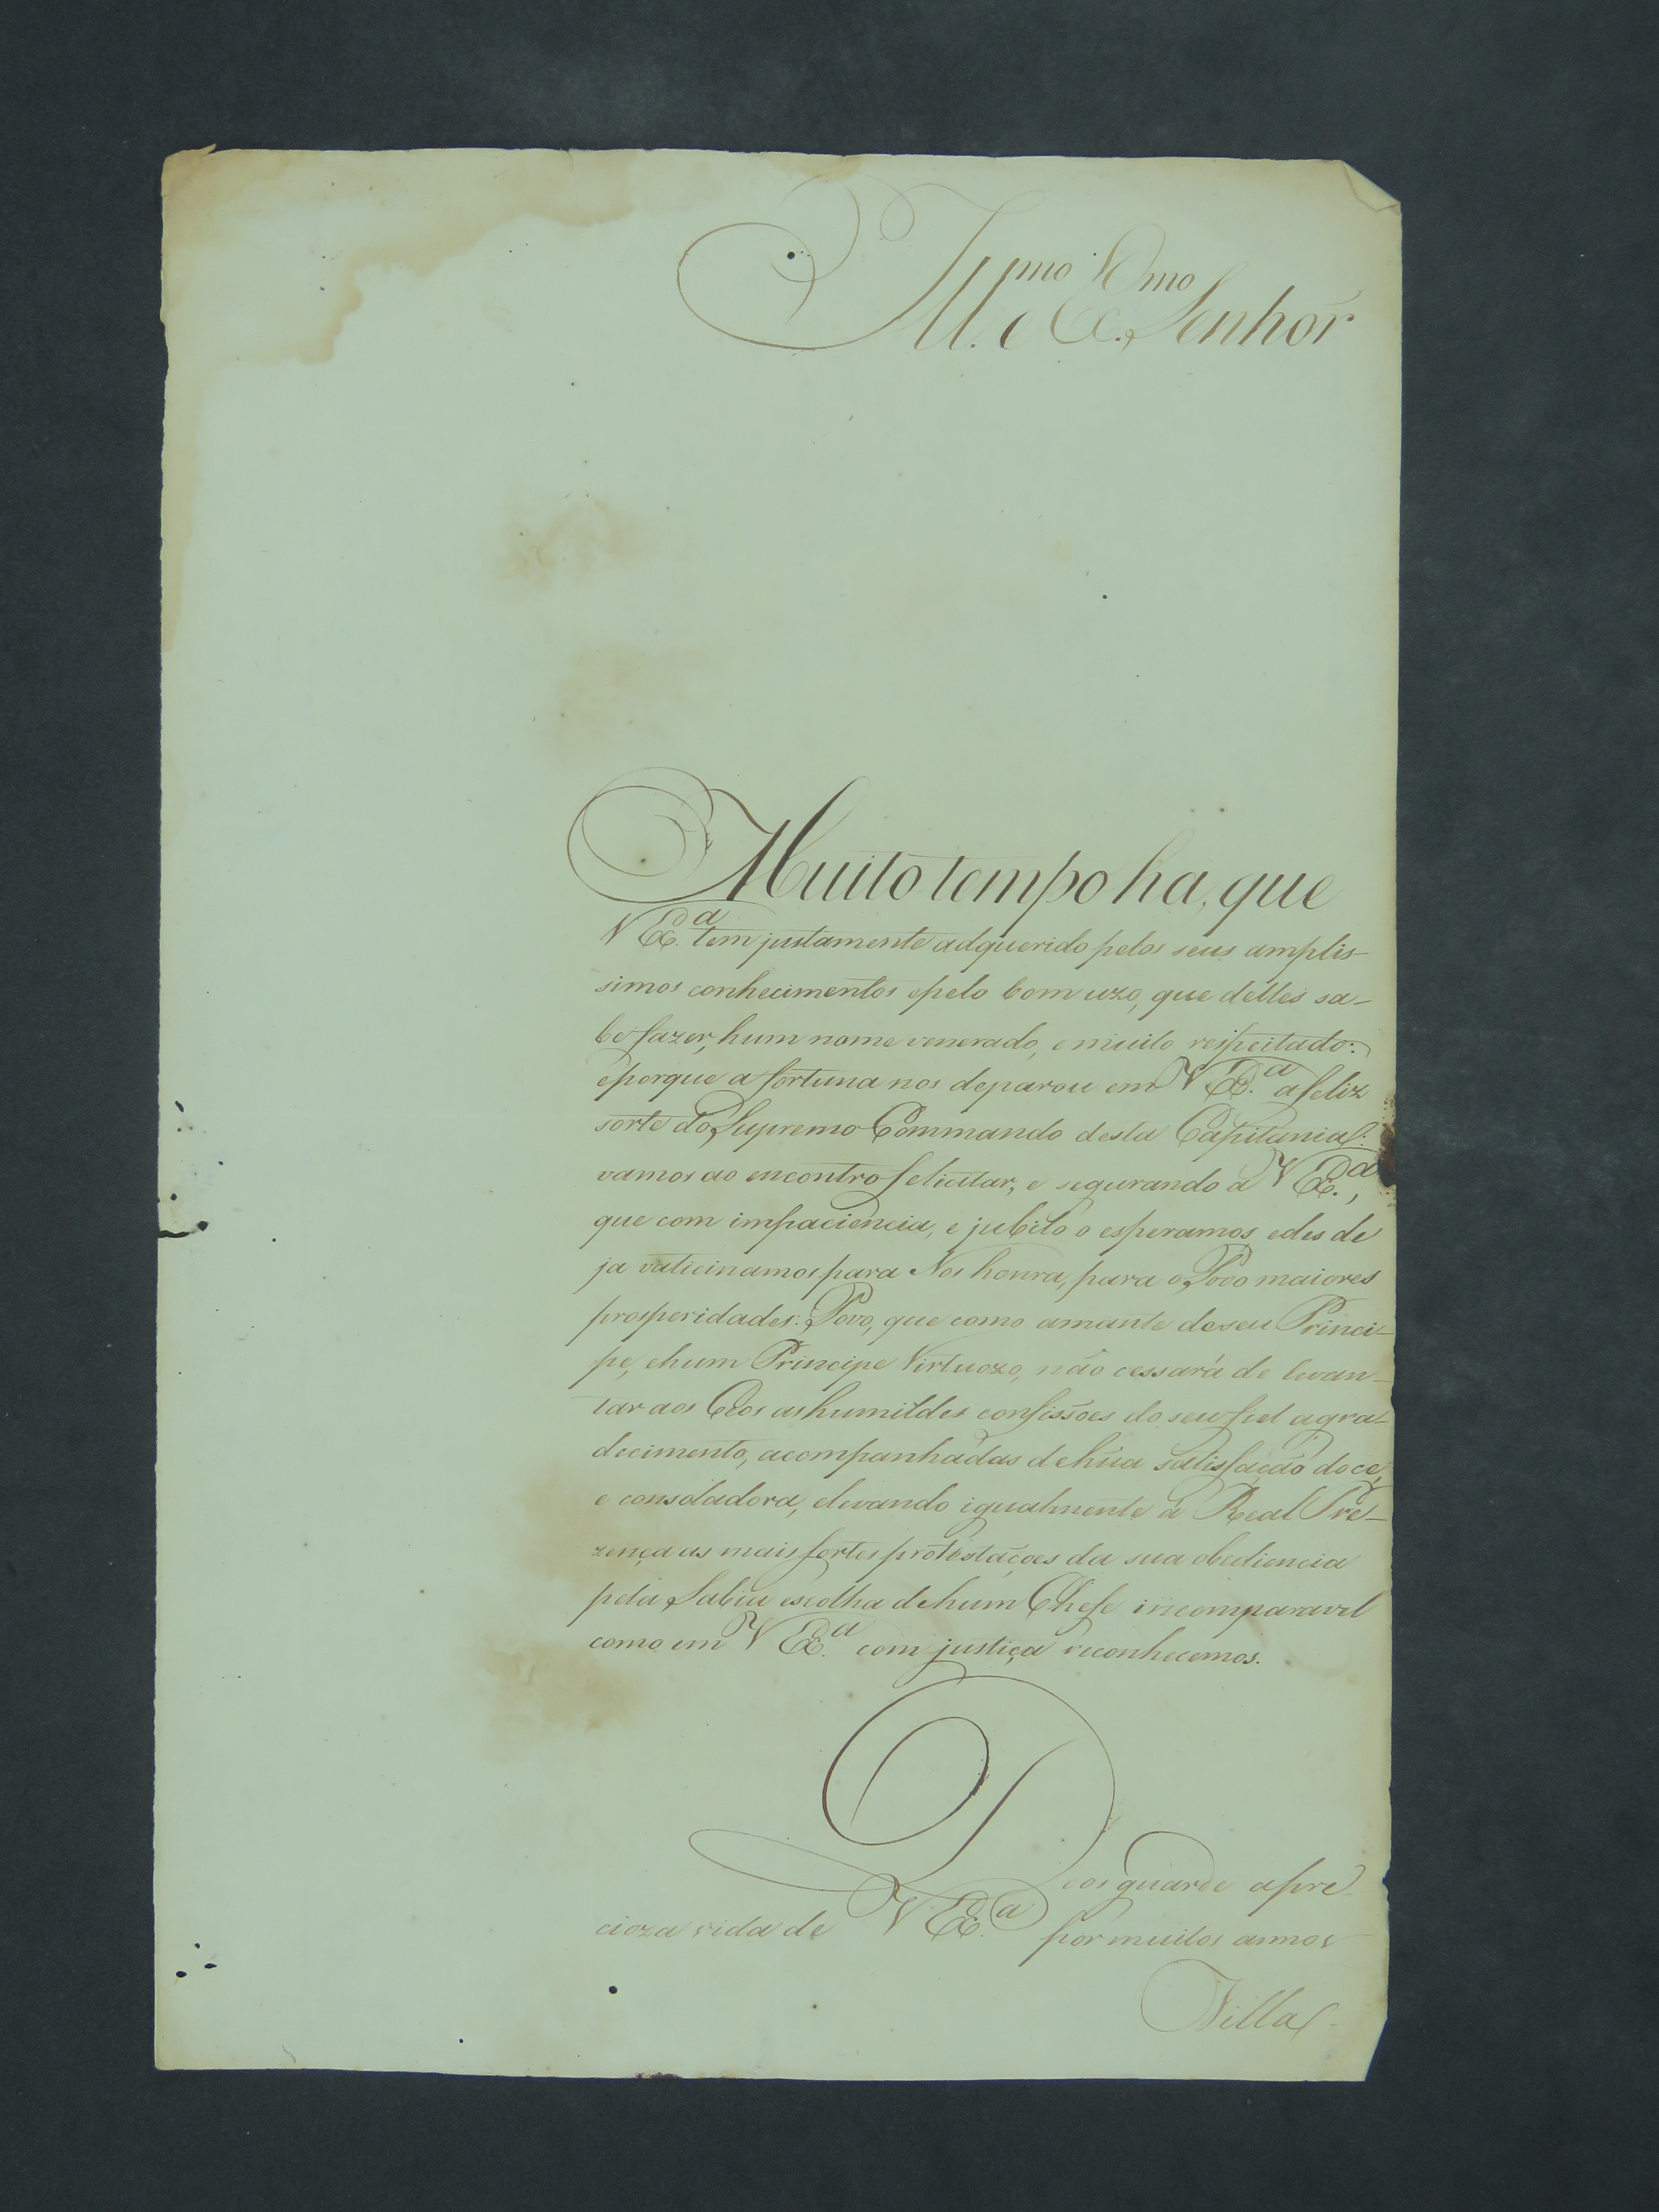 Ill.mo e Ex.mo Senhor
Muito tempo ha, que
V Ex.a tem justamente adquerido pelos seus amplis-
simos conhecimentos epelo bom uzo, que delles sa-
be fazer, hum nome venerado, e muito respeitado:
eporque a fortuna nos deparou em V Ex.a a feliz
sorte do Supremo Commando desta Capitania:
vamos ao encontro felicitar, e segurando a V Ex.a,
que com impaciencia, e jubilo o esperamos, edes de
ja vaticinamos para Nos honra, para o Povo maiores
prosperidades: Povo, que como amante deseu Princi-
pe, ehum Principe Virtuozo, não cessará de levan-
tar aos Ceos as humildes confissões do seu fiel agra-
decimento, acompanhadas dehũa satisfação doce,
e consoladora, elevando igualmente á Real Pre-
zença as mais fortes protestações da sua obediencia
pela Sabia escolha dehum Chefe incomparavel
como em V Ex.a com justiça reconhecemos.
Deos guarde apre
cioza vida de V Ex.a por muitos annos
Villa